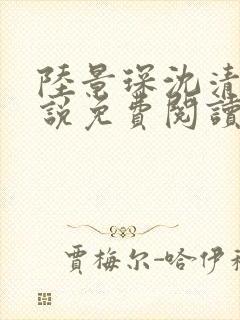 陸景琛沈清
說免費閱讀
賈梅尔-哈伊利